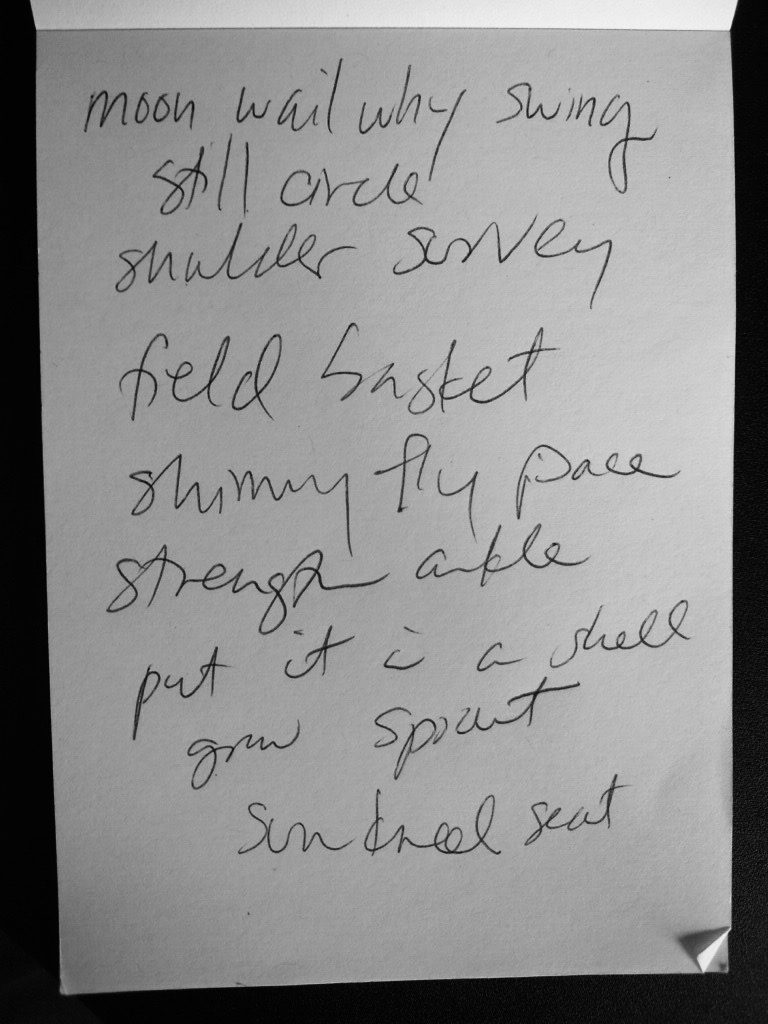 moon wail why swing
still circle
shoulder survey
field basket
shimmy fly pace
strength ankle
put it in a shell
grow sprout
sun kneel seat